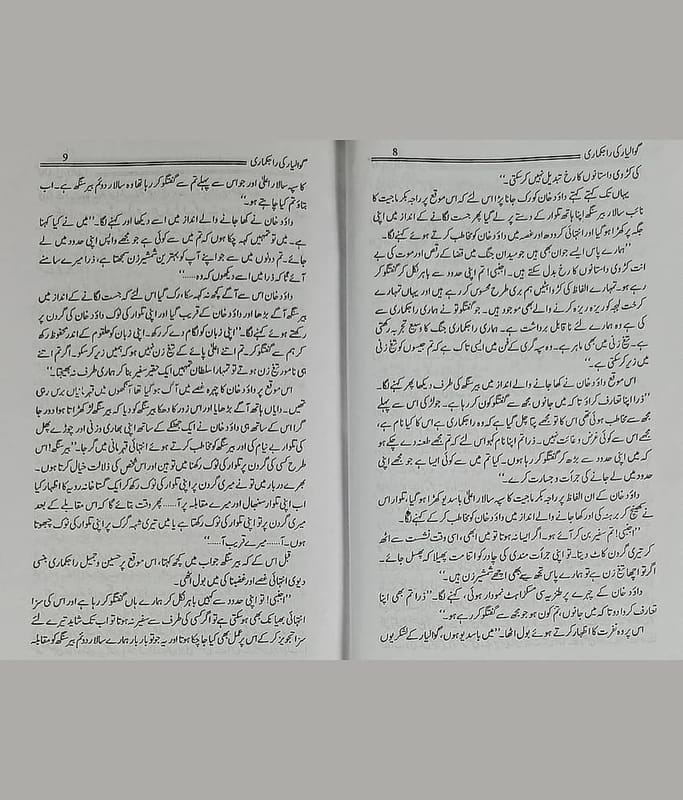 گوالیار کی راجکماری
8
کی کڑوی داستانوں کا رخ تبدیل نہیں کر سکتی۔‘‘
یہاں تک کہتے کہتے داؤد خان کو رک جانا پڑا اس لئے کہ اس موقع پر راجہ بکر ماجیت کا
نائب سالار بیر سنگھ اپنا ہاتھ تلوار کے دستے پر لے گیا پھر جست لگانے کے انداز میں اپنی
جگہ پر کھڑا ہو گیا اور انتہائی کرودھ اور غصہ میں داؤد خان کو مخاطب کرتے ہوئے کہنے لگا۔
’’ہمارے پاس ایسے جوان بھی ہیں جو میدان جنگ میں قضا کے رقص اور موت کی بے
انت کڑوی داستانوں کا رخ بدل سکتے ہیں۔ اجنبی! تم اپنی حدود سے باہر نکل کر گفتگو کر
رہے ہو۔ تمہارے الفاظ کی کڑواہٹیں ہم بری طرح محسوس کر رہے ہیں اور یہاں تمہارے
کرخت لہجہ کو ریزہ ریزہ کرنے والے بھی موجود ہیں۔ جو گفتگو تو نے ہماری راجکماری سے
کی ہے وہ ہمارے لئے ناقابل برداشت ہے۔ ہماری راجکماری جنگ کا وسیع تجربہ رکھتی
ہے۔ تیغ زنی میں بھی ماہر ہے۔ وہ سپہ گری کے فن میں ایسی تاک ہے کہ تم جیسوں کو تیغ زنی
میں زیر کر سکتی ہے۔‘‘
اس موقع داؤد خان نے کھا جانے والے انداز میں بیر سنگھ کی طرف دیکھا پھر کہنے لگا۔
’’ذرا اپنا تعارف کراؤ تا کہ میں جانوں مجھ سے گفتگو کون کر رہا ہے۔ جو لڑکی اس سے پہلے
مجھ سے مخاطب ہوئی تھی اس کا تو مجھے پتا چل گیا ہے کہ وہ راجکماری ہے اس کا کیا نام ہے،
مجھے اس سے کوئی غرض و غائت نہیں۔ ذرا تم اپنا نام کہو اس لئے کہ تم مجھے طعنہ دے چکے ہو
کہ میں اپنی حدود سے بڑھ کر گفتگو کر رہا ہوں۔ کیا تم میں سے کوئی ایسا ہے جو مجھے اپنی
حدود میں لے جانے کی جرأت و جسارت کرے۔‘‘
داؤد خان کے ان الفاظ پر راجہ بکر ماجیت کا سپہ سالار اعلیٰ باسدیو کھڑا ہو گیا، تلوار اس
نے کھینچ کر برہنہ کی اور کھا جانے والے انداز میں داؤد خان کو مخاطب کر کے کہنے لگا۔
’’اجنبی! تم سفیر بن کر آئے ہو۔ اگر ایسا نہ ہوتا تو میں ابھی، اسی وقت نشست سے اٹھ
کر تیری گردن کاٹ دیتا۔ تو اپنی جرأت مندی کی چادر کو اتنا مت پھیلا کہ پھسل جائے۔
اگر تو اچھا تیغ زن ہے تو ہمارے پاس تجھ سے بھی اچھے شمشیر زن ہیں۔‘‘
داؤد خان کے چہرے پر طنزیہ سی مسکراہٹ نمودار ہوئی، کہنے لگا۔ ’’ذرا تم بھی اپنا
تعارف کروا دو تا کہ میں جانوں، تم کون ہو جو مجھ سے گفتگو کر رہے ہو۔‘‘
اس پر وہ نفرت کا اظہار کرتے ہوئے بول اٹھا۔ ’’میں باسدیو ہوں، گوالیار کے لشکریوں
گوالیار کی راجکماری
9
کا سپہ سالار اعلیٰ اور جو اس سے پہلے تم سے گفتگو کر رہا تھا وہ سالار دوئم بیر سنگھ ہے۔ اب
بتاؤ تم کیا چاہتے ہو۔‘‘
داؤد خان نے کھا جانے والے انداز میں اسے دیکھا اور کہنے لگا۔ ’’میں نے کیا کہنا
ہے۔ میں تو تمہیں کہہ چکا ہوں کہ تم میں سے کوئی ہے جو مجھے واپس اپنی حدود میں لے
جائے۔ تم دونوں میں سے جو اپنے آپ کو بہترین شمشیر زن سمجھتا ہے، ذرا میرے سامنے
آئے تا کہ ذرا میں اسے دیکھوں کہ وہ......‘‘
داؤد خان اس سے آگے کچھ نہ کہہ سکا، رک گیا اس لئے کہ جست لگانے کے انداز میں
بیر سنگھ آگے بڑھا اور داؤد خان کے قریب گیا اور اپنی تلوار کی نوک داؤد خان کی گردن پر
رکھتے ہوئے کہنے لگا۔ ’’اپنی زبان کو لگام دے کر رکھ۔ اپنی زبان کو حلقوم کے اندر محفوظ رکھ
کر ہم سے گفتگو کر۔ تم اتنے اعلیٰ پائے کے تیغ زن نہیں ہو کہ ہمیں زیر کر سکو۔ اگر تم اتنے
ہی نامور تیغ زن ہوتے تو تمہارا سلطان تمہیں ایک حقیر سفیر بنا کر ہماری طرف نہ بھیجتا۔‘‘
اس موقع پر داؤد خان کا چہرہ غصے میں آگ ہو گیا تھا آنکھوں میں قہرمانیاں برس رہی
تھیں۔ دایاں ہاتھ آگے بڑھایا اور اس زور کا دھکا بیر سنگھ کو دیا کہ بیر سنگھ لڑکھڑاتا ہوا دور جا
گرا اس کے ساتھ ہی داؤد خان نے ایک جھٹکے کے ساتھ اپنی بھاری وزنی اور چوڑے پھل
کی تلوار بے نیام کی اور بیر سنگھ کو مخاطب کرتے ہوئے انتہائی قہرمانی میں گرجا۔ ’’بیر سنگھ! اس
طرح کسی کی گردن پر تلوار کی نوک رکھنا میں توہین اور اس شخص کی ذلالت خیال کرتا ہوں۔
بھرے دربار میں تو نے میری گردن پر اپنی تلوار کی نوک رکھ کر ایک گستاخانہ رویہ کا اظہار کیا
اب اپنی تلوار سنبھال اور میرے مقابلہ پر آ...... پھر وقت بتائے گا کہ اس مقابلے کے بعد
میری گردن پر تو اپنی تلوار کی نوک رکھتا ہے یا میں تیری شہہ رگ پر اپنی تلوار کی نوک چبھوتا
ہوں۔ آ...... میرے قریب آ......‘‘
قبل اس کے کہ بیر سنگھ جواب میں کچھ کہتا، اس موقع پر حسین و جمیل راجکماری بنسی
دیوی انتہائی غصے اور غضبناکی میں بول اٹھی۔
’’اجنبی! تو اپنی حدود سے کہیں باہر نکل کر ہمارے ہاں گفتگو کر رہا ہے اور اس کی سزا
انتہائی بھیانک بھی ہو سکتی ہے تو اگر کسی کی طرف سے سفیر نہ ہوتا تو اب تک شاید تیرے لئے
سزا تجویز کر کے اس پر عمل بھی کیا جا چکا ہوتا اور یہ جو تو بار بار ہمارے سالار دوئم بیر سنگھ کو مقابلہ